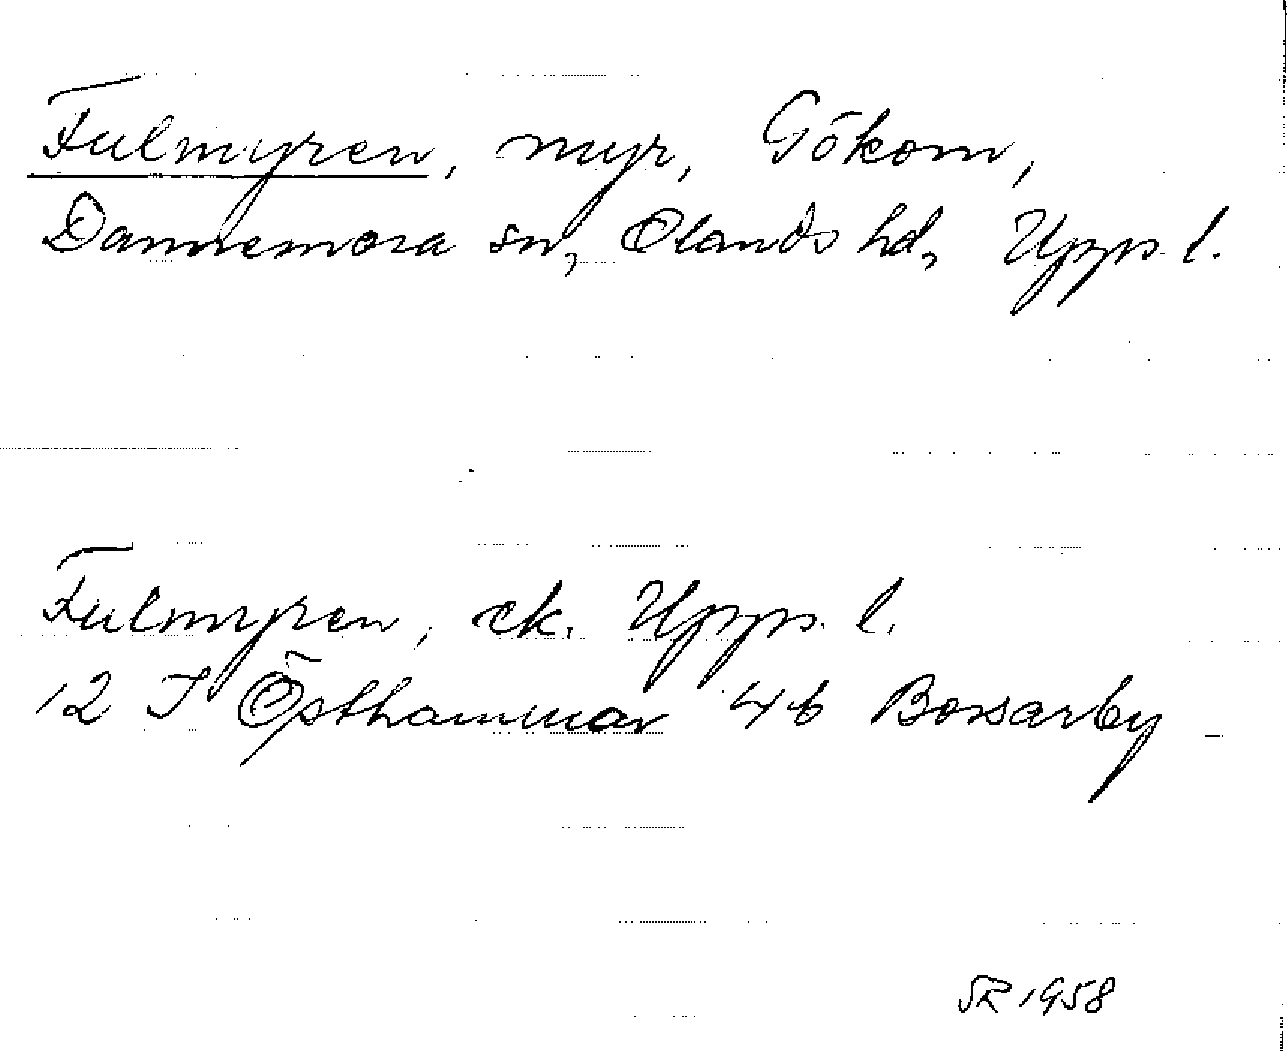 Fulmyren, myr, Gökom,
Dannemora sn, Olands hd, Upps. l.
Fulmyren, ek. Upps. l.
12 I Östhammar 4b Bossarby
SR 1958